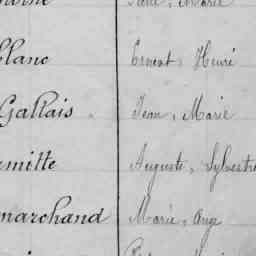 blanc Ernest, Henri
Gallais Jean, Marie
rmitte Auguste, Sylvestre
marchand Marie, Ange